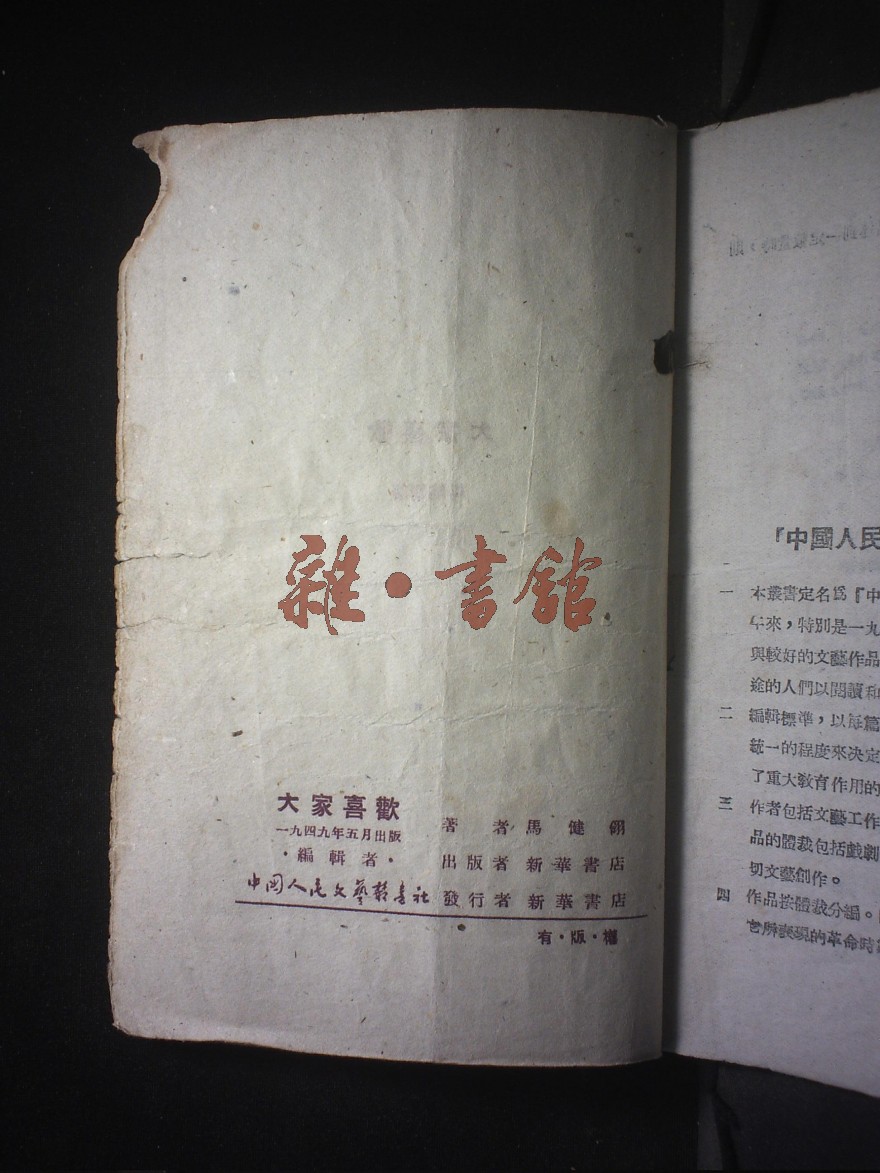 雜·書舘
大家喜歡
一九四九年五月出版
·編輯者·
中國人民文藝叢書社
著者馬健翎
出版者新華書店
發行者新華書店
有·版·權
『中國人民
一 本叢書定名爲『中
年來，特別是一九
與較好的文藝作品
途的人們以閱讀和
二 編輯標準，以每篇
統一的程度來决定
了重大敎育作用的
三 作者包括文藝工作
品的體裁包括戲劇
切文藝創作。
四 作品按體裁分編。
它所表現的革命時